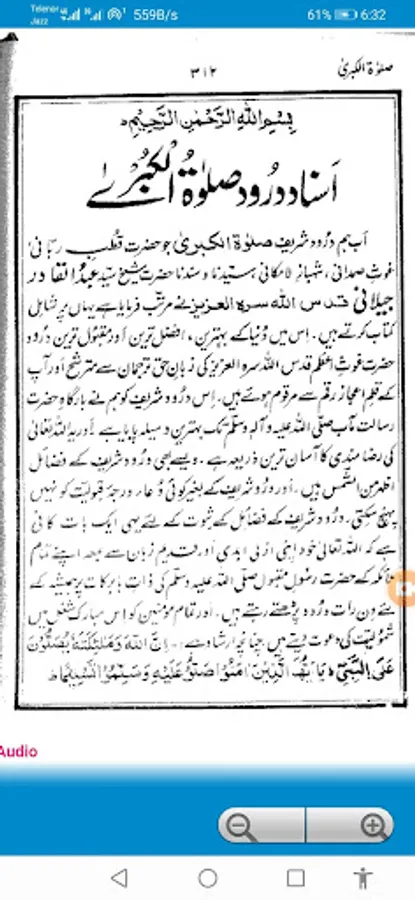 Telenor
Jazz
559B/s
61%
6:32
صلوٰۃ الکبریٰ
۳۱۲
بِسْمِ اللهِ الرَّحْمٰنِ الرَّحِيْمِ
اَسناد درُود صلوٰۃُ الکُبرٰے
اَب ہم درُود شریف صلوٰۃ الکبریٰ جو حضرت قُطبِ ربّانی
غوثِ صمدانی، شہبازِ لامکانی سیّدنا و سندنا حضرت شیخ سیّد عبدُ القادر
جیلانی قدس اللہ سرہ العزیز نے مرتّب فرمایا ہے یہاں پر شاملِ
کتاب کرتے ہیں۔ اِس میں دُنیا کے بہترین، افضل ترین اور مقبُول ترین درُود
حضرت غوثِ اعظم قدس اللہ سرہ العزیز کی زبانِ حق ترجمان سے مترشح اور آپ
کے قلمِ اعجاز رقم سے مرقوم ہوئے ہیں۔ اِس درُود شریف کو ہم نے بارگاہِ حضرت
رسالت مآب صلّی اللہ علیہ و آلہ وسلّم تک بہترین وسیلہ پایا ہے اور یہ اللہ تعالیٰ
کی رضامندی کا آسان ترین ذریعہ ہے۔ ویسے بھی درُود شریف کے فضائل
اظہر من الشمس ہیں، اور درُود شریف کے بغیر کوئی دُعا درجۂ قبولیت کو نہیں
پہنچ سکتی۔ درُود شریف کے فضائل کے ثبوت کے لئے یہی ایک بات کافی
ہے کہ اللہ تعالیٰ خود اپنی ازلی ابدی اور قدیم زبان سے بمعہ اپنے تمام
ملائکہ کے حضرت رسُولِ مقبُول صلّی اللہ علیہ وسلّم کی ذاتِ بابرکات پر ہمیشہ کے
لئے دِن رات درُود پڑھتے رہتے ہیں۔ اور تمام مومنین کو اس مبارک شغل میں
شمُولیّت کی دعوت دیتے ہیں چنانچہ ارشاد ہے:۔ اِنَّ اللهَ وَمَلٰئِكَتَهٗ يُصَلُّوْنَ
عَلَى النَّبِيِّ ؕ يٰاَيُّهَا الَّذِيْنَ اٰمَنُوْا صَلُّوْا عَلَيْهِ وَسَلِّمُوْا تَسْلِيْمًا ؕ
Audio